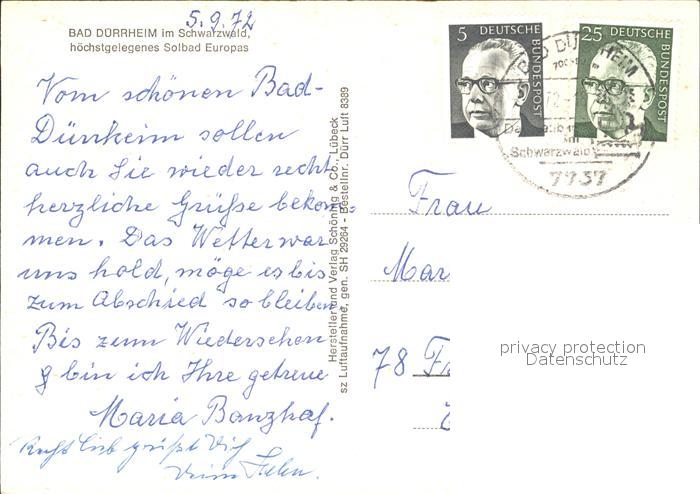 5.9.72
BAD DÜRRHEIM im Schwarzwald,
höchstgelegenes Solbad Europas
Vom schönen Bad-
Dürrheim sollen
auch Sie wieder recht
herzliche Grüße bekom=
men. Das Wetter war
uns hold, möge es bis
zum Abschied so bleiben
Bis zum Wiedersehen
bin ich Ihre getreue
Maria Banzhaf.
Recht lieb grüßt Dich
Hersteller und Verlag Schöning & Co., Lübeck
sz Luftaufnahme, gen. SH 29264 - Bestellnr. Dürr Luft 8389
5 DEUTSCHE BUNDESPOST
25 DEUTSCHE BUNDESPOST
BAD DÜRRHEIM
im
Schwarzwald
7737
Frau
Mar
78 F
privacy protection
Datenschutz